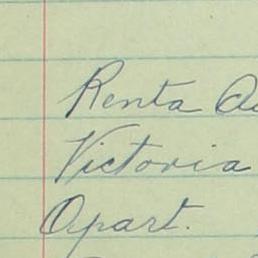 Renta
Victoria
Apart.